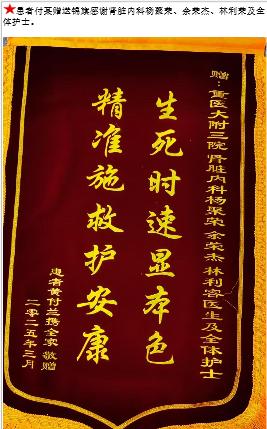 ★患者付某赠送锦旗感谢肾脏内科杨聚荣、余荣杰、林利荣及全
体护士。
赠：重医大附三院肾脏内科杨聚荣 余荣杰 林利容医生及全体护士
生死时速显本色
精准施救护安康
患者黄付兰携全家 敬赠
二〇二五年三月